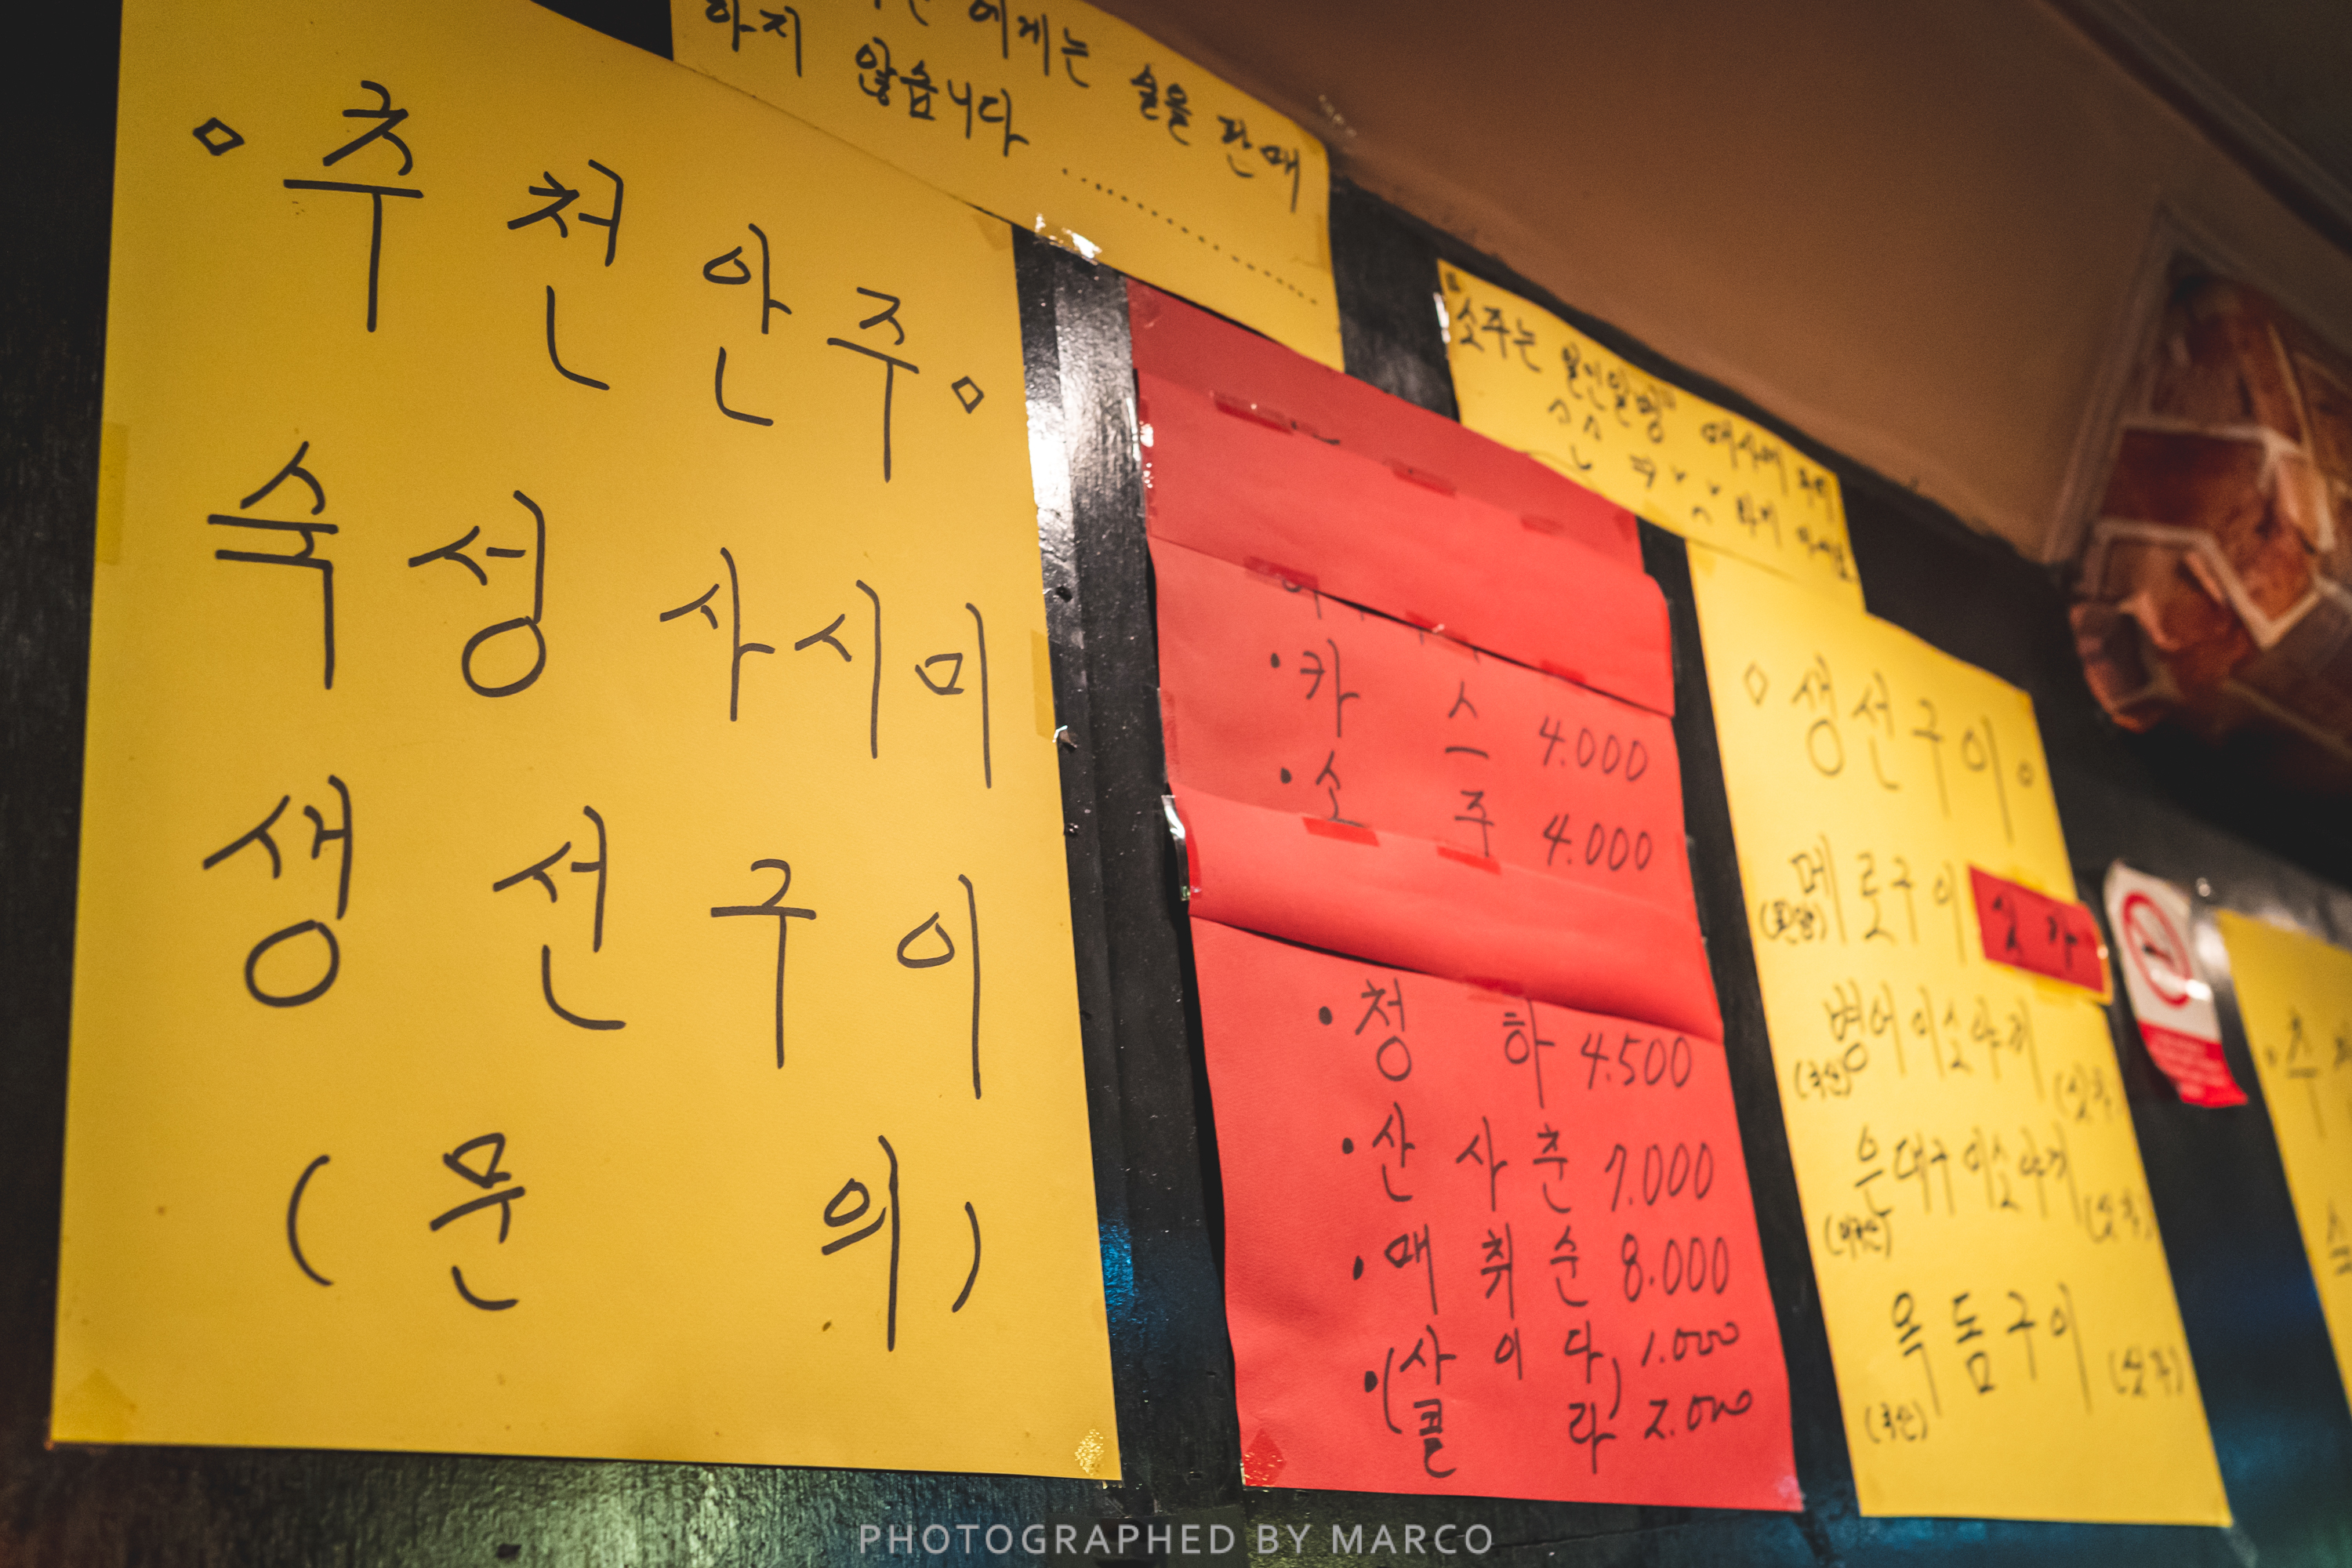 ◇ 추천안주 ◇
숙성 사시미
생선구이
(문의)
에게는 술을 판매
하지 않습니다 ..............
• 카스 4.000
• 소주 4.000
• 청하 4.500
• 산사춘 7.000
• 매취순 8.000
• (사이다 1.000
콜라) 2.000
"소주는 일인일병"
◇ 생선구이 ◇
메로구이 싯가
병어이소야끼 (싯가)
(국산)
은대구이소야끼 (싯가)
옥돔구이 (싯가)
(국산)
PHOTOGRAPHED BY MARCO